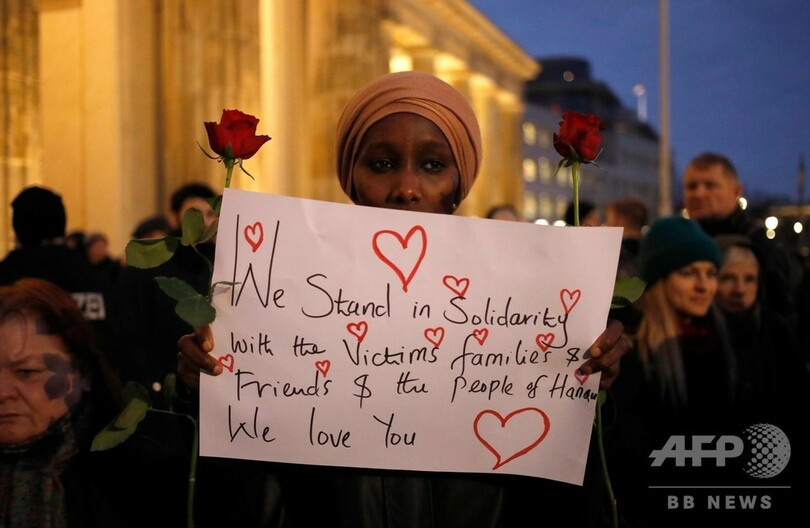 We Stand in Solidarity
with the Victims families &
Friends & the people of Hanau
We love You
ZEI
AFP
BB NEWS